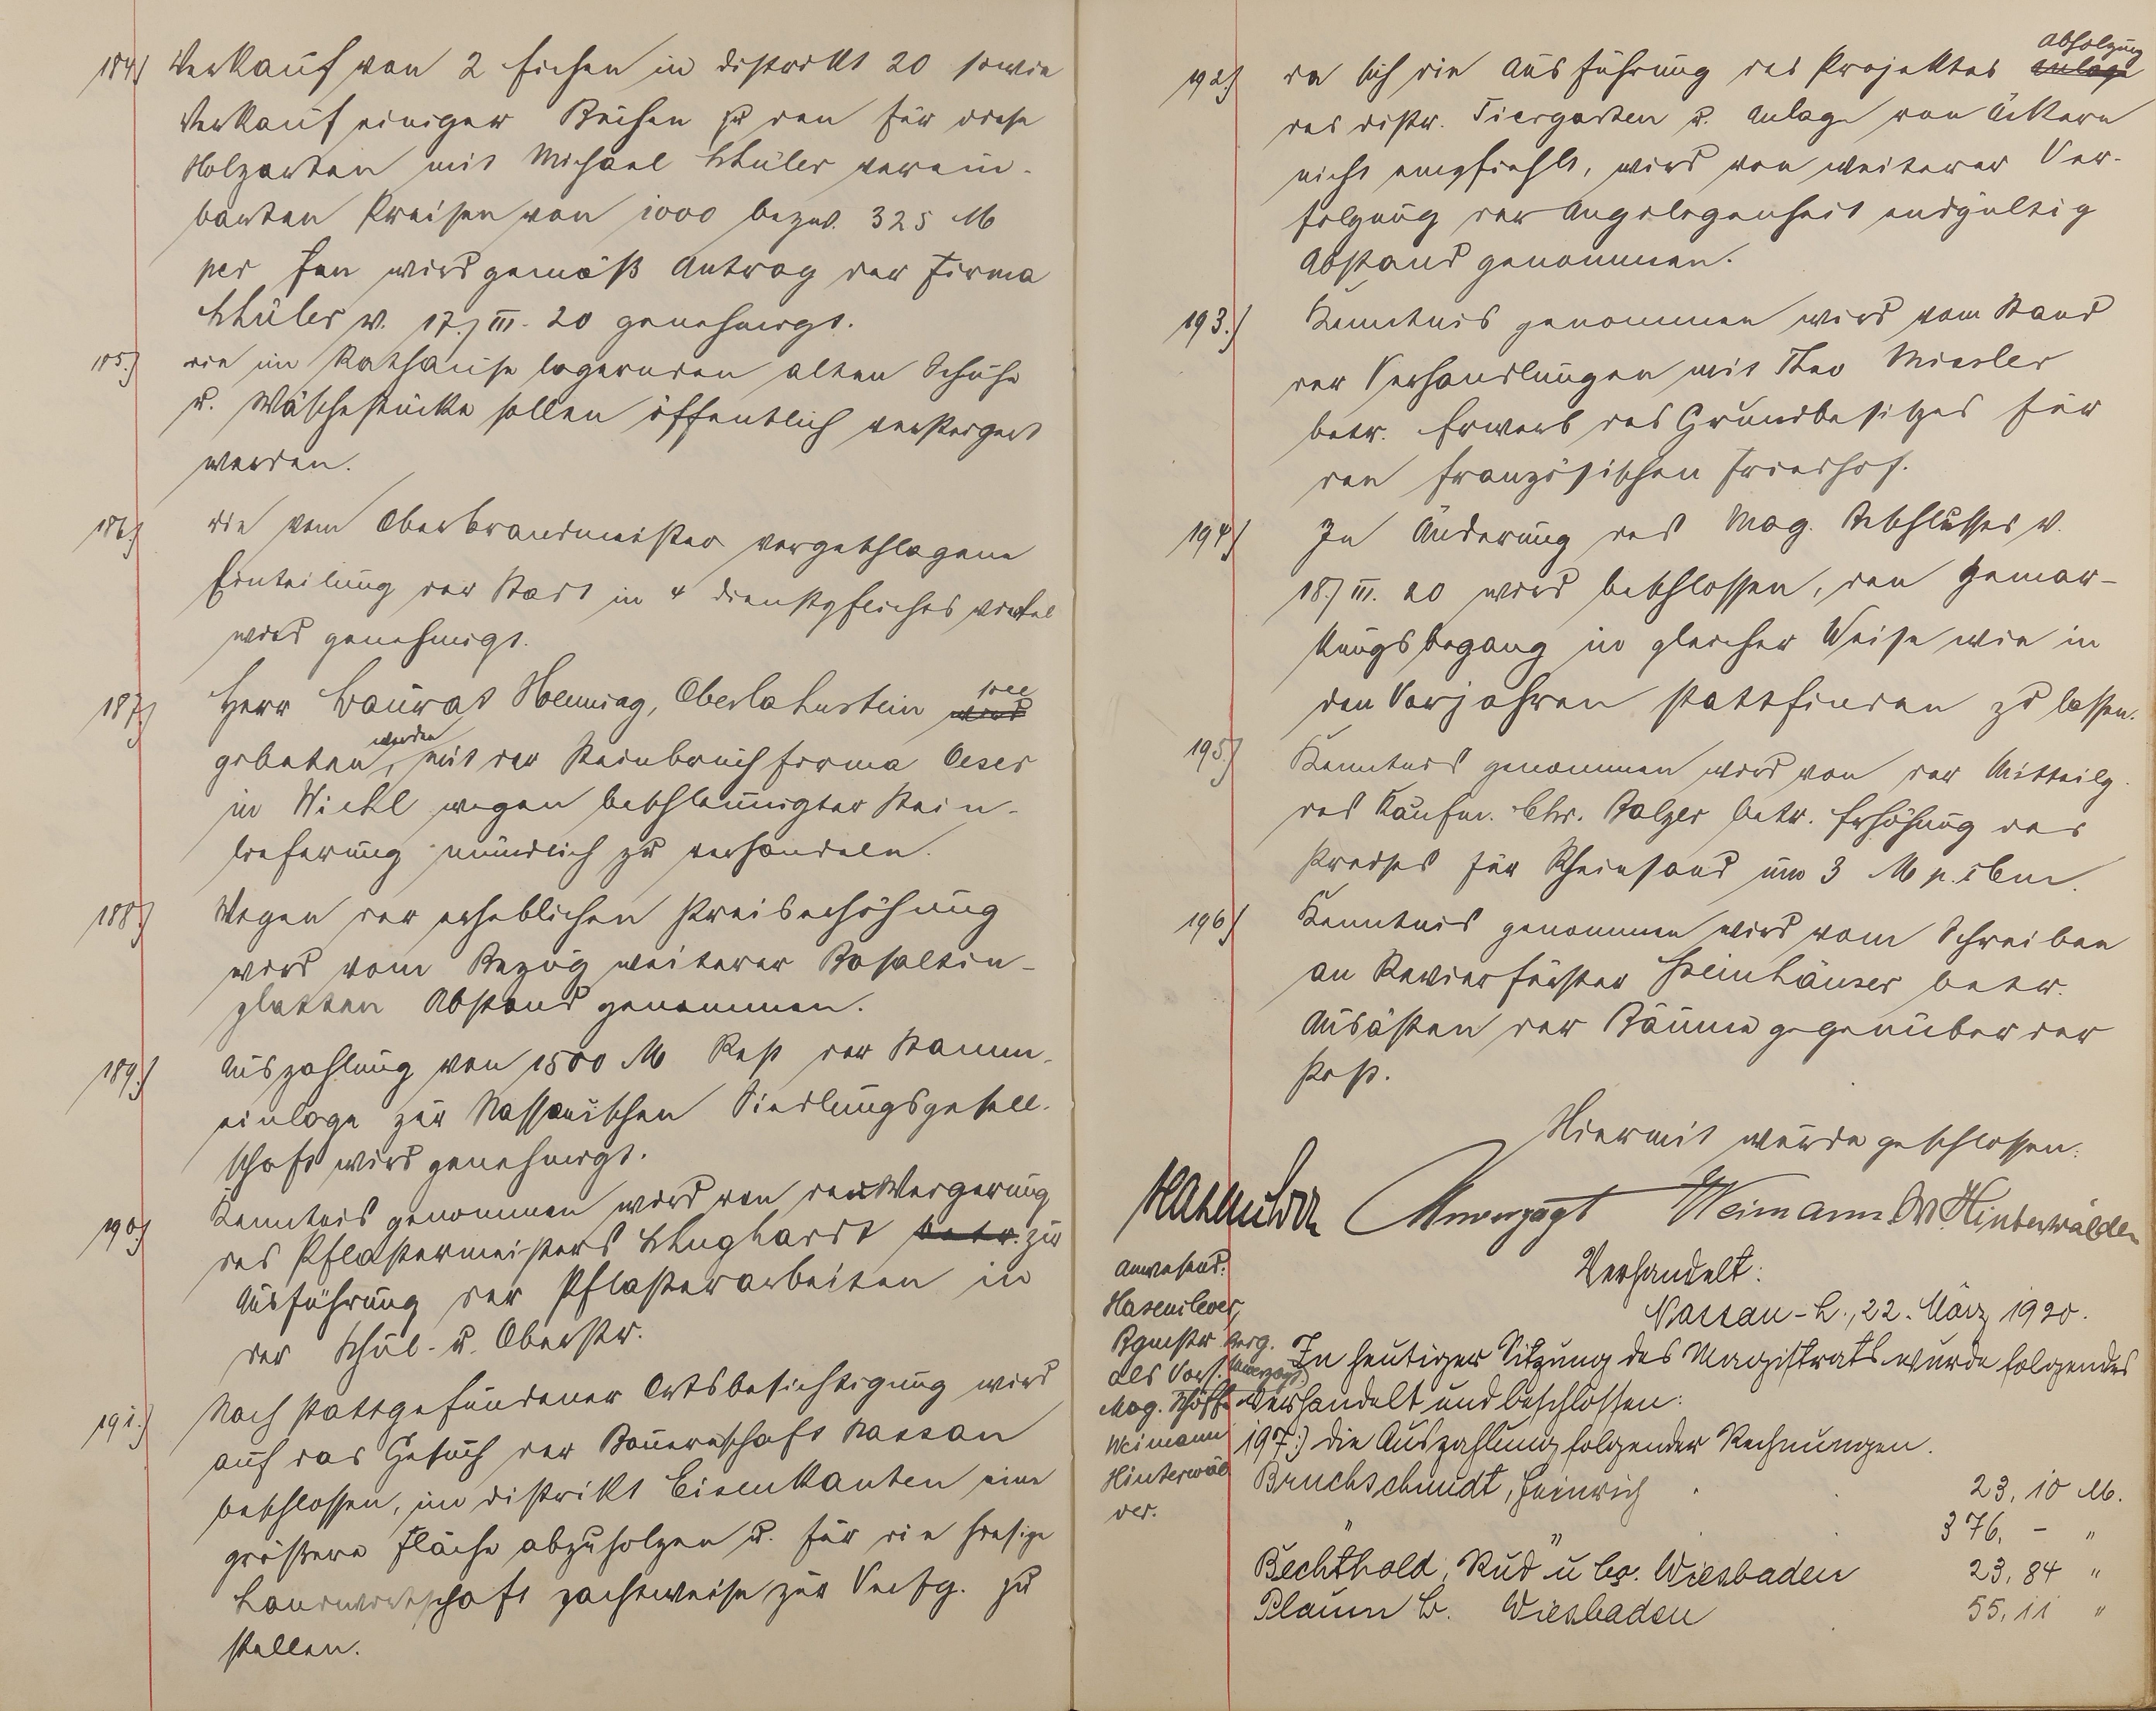 184.) Verkauf von 2 Eichen in Distrikt 20 sowie
Verkauf einiger Buchen zu den für diese
Holzarten mit Michael Schüler verein-
barten Preisen von 1000 bezw. 325 M
per fm wird gemäß Antrag der Firma
Schüler v. 17./III. 20 genehmigt.
185.) die im Rathause lagernden alten Schuhe
u. Wäschestücke sollen öffentlich versteigert
werden.
186.) die vom Oberbrandmeister vorgeschlagene
Einteilung der Stadt in 4 Dienstpflichtsviertel
wird genehmigt.
187.) Herr Baurat Henning, Oberlahnstein wird soll
gebeten werden, mit der Steinbruchfirma Oeser
in wegen beschleunigter Stein-
lieferung mündlich zu verhandeln.
188.) Wegen der erheblichen Preiserhöhung
wird vom Bezug weiterer Basaltin-
platten Abstand genommen.
189.) Auszahlung von 1500 M Rest der Stamm-
einlage zur Nassauischen Siedlungsgesell-
schaft wird genehmigt.
190.) Kenntnis genommen wird von der Weigerung
des Pflastermeisters betr. zur
Ausführung der Pflasterarbeiten in
der Schul- u. Oberstr.
191.) Nach stattgefundener Ortsbesichtigung wird
auf das Gesuch der Bauernschaft Nassau
beschlossen, im Distrikt Eisenkauten eine
größere Fläche abzuholzen u. für die hiesige
Landwirtschaft pachtweise zur Verfg. zu
stellen.
192.) da sich die Ausführung des Projektes Anlage Abholzung
des Distr. Tiergarten u. Anlage von Äckern
nicht empfiehlt, wird von weiterer Ver-
folgung der Angelegenheit endgültig
Abstand genommen.
193.) Kenntnis genommen wird vom Stand
der Verhandlungen mit Theo
betr. Erwerb des Grundbesitzes für
den französischen Friedhof.
194.) In Änderung des Mag. Beschlusses v.
18./III. 20 wird beschlossen, den Gemar-
kungsbegang in gleicher Weise wie in
den Vorjahren stattfinden zu lassen.
195.) Kenntnis genommen wird von der Mitteilg.
des Kaufm. Chr. Balzer betr. Erhöhung des
Preises für Rheinsand um 3 M p. cbm.
196.) Kenntnis genommen wird vom Schreiben
an Revierförster betr.
Ausästen der Bäume gegenüber der
Post.
Hiermit wurde geschlossen.
Hasenclever Unverzagt Weimann W. Hinterwälder
Verhandelt:
Nassau-L., 22. März 1920.
Anwesend:
Hasenclever,
Bgmstr.
als Vors. Unverzagt,
Mag. Schöffe
Weimann
Hinterwäl
der.
In heutiger Sitzung des Magistrats wurde folgendes
verhandelt und beschlossen:
197.) die Auszahlung folgender Rechnungen.
Bruchschmidt, Heinrich 23,10 M.
" " 376, - "
Bechthold, Rud u Co. Wiesbaden 23,84 "
Plaum L. Wiesbaden 55,11 "